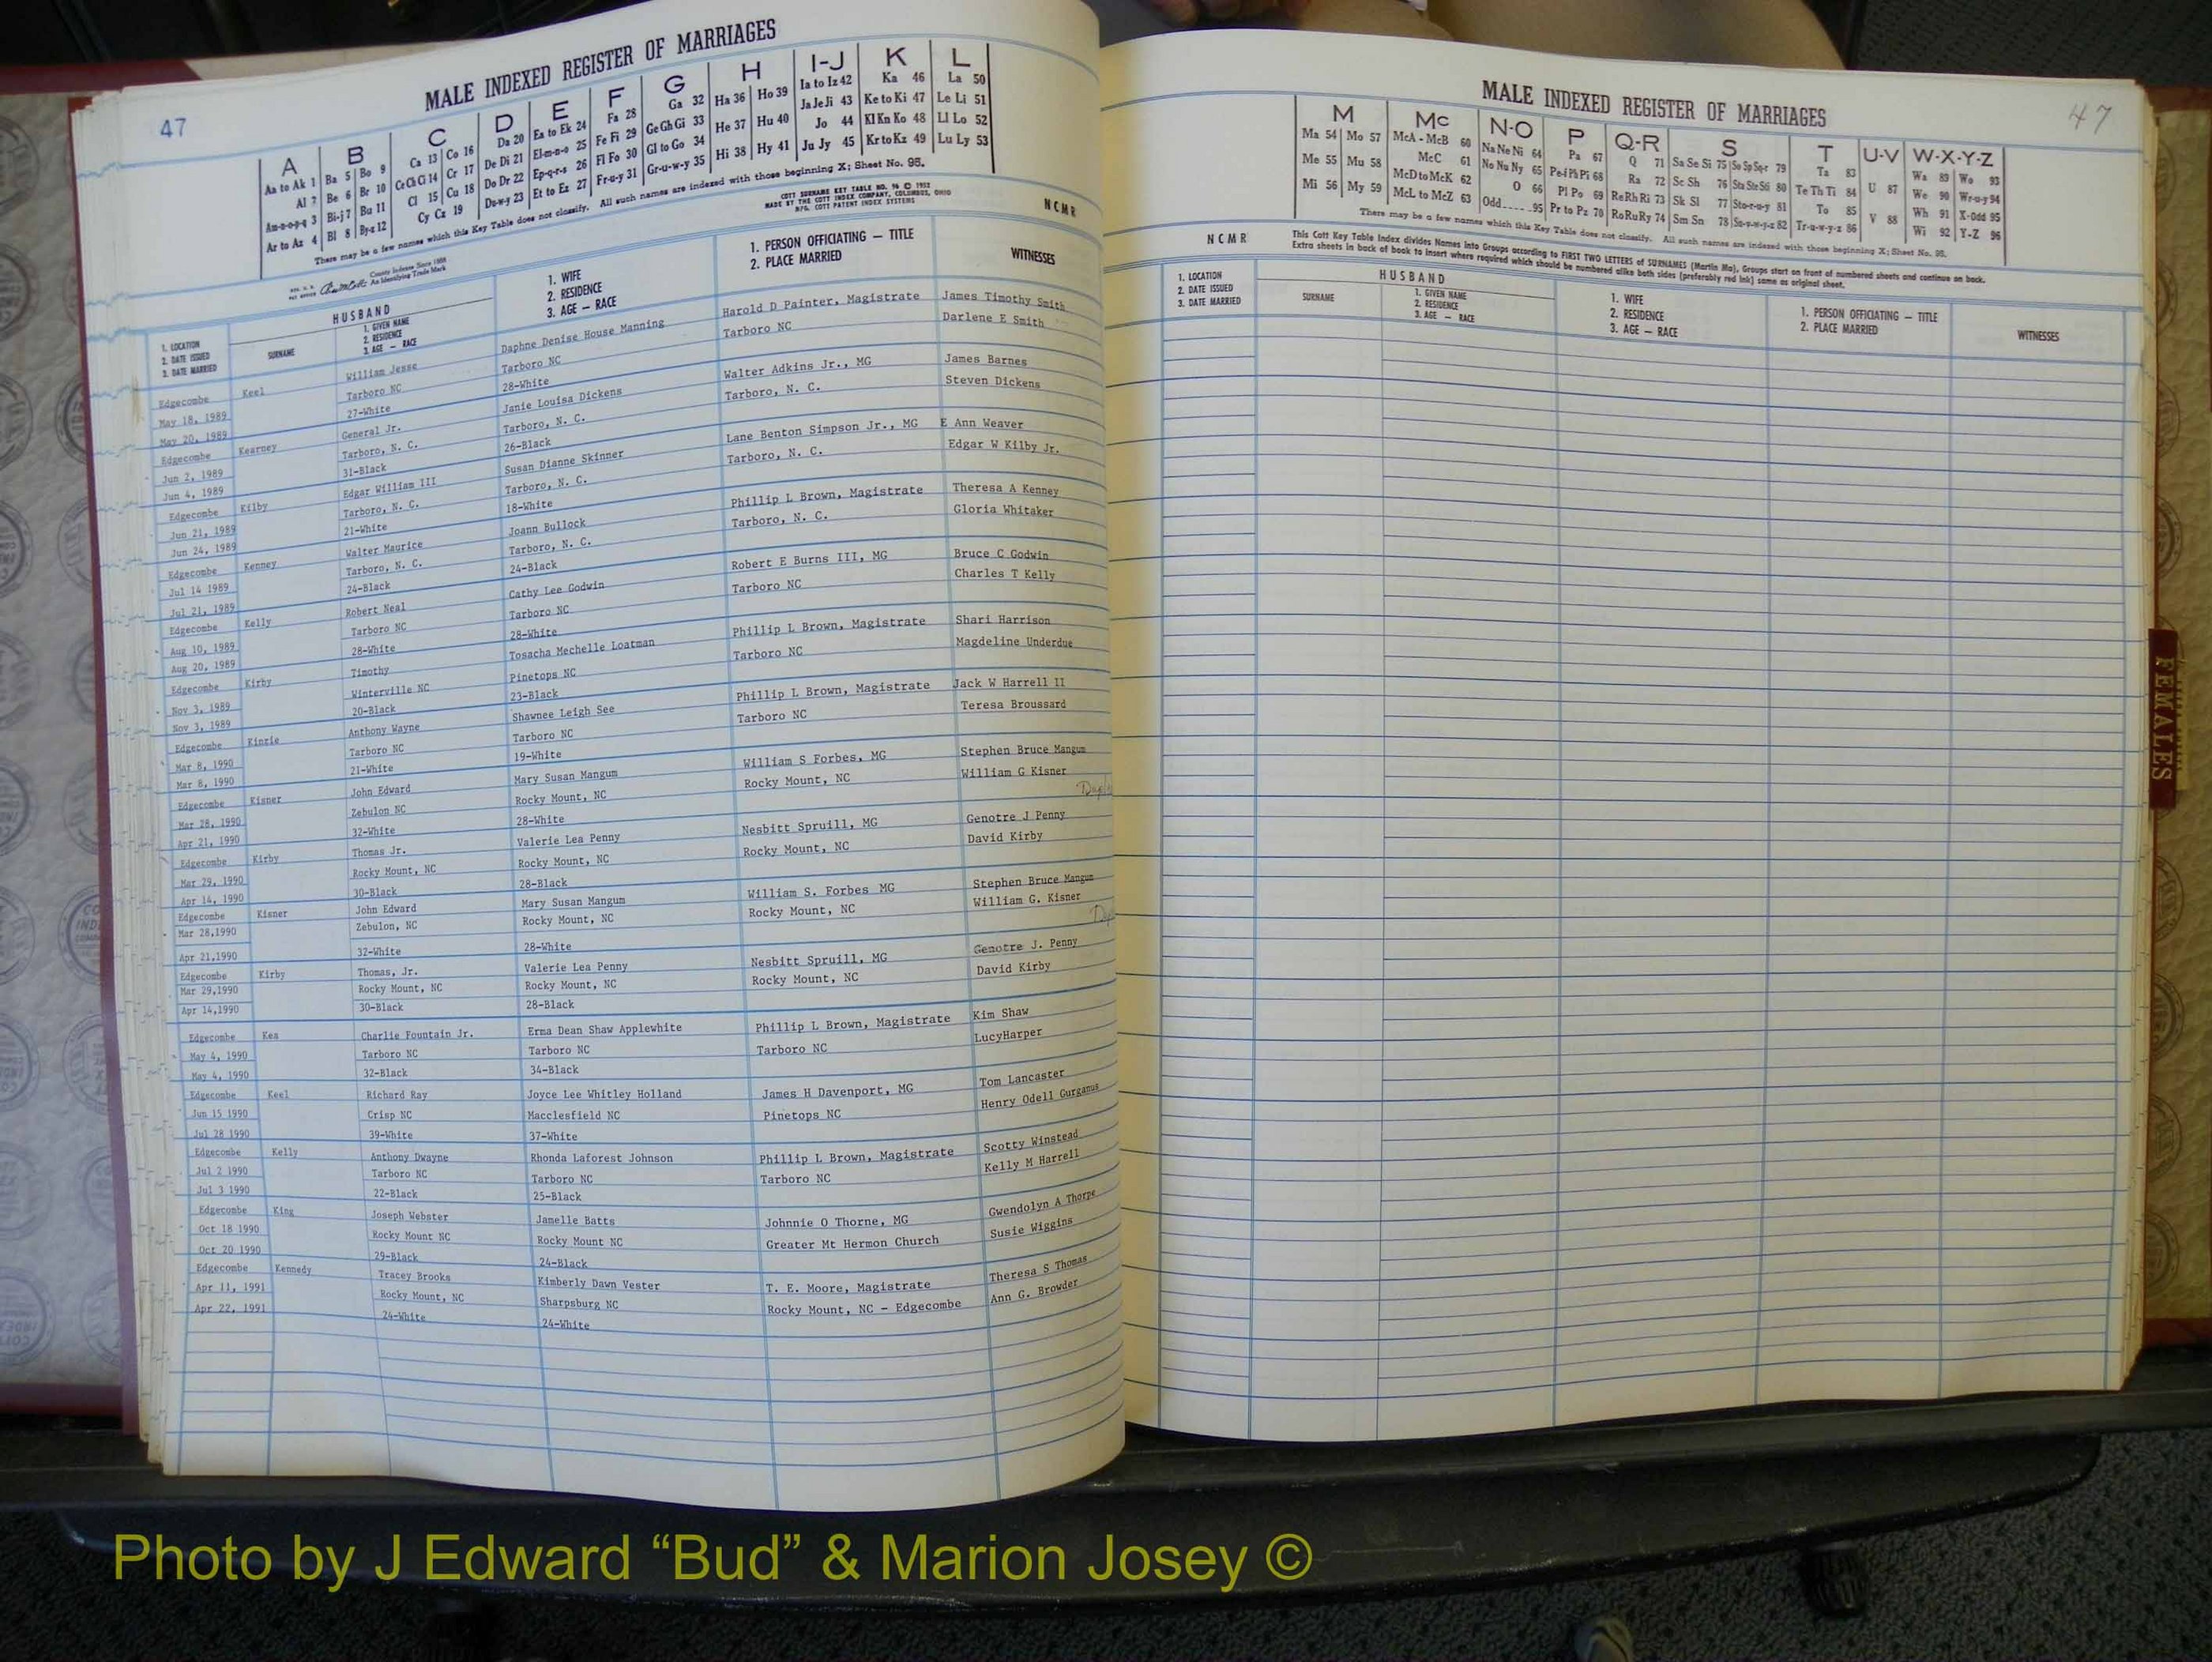 47
MALE INDEXED REGISTER OF MARRIAGES
A B C D E F G H I-J K L
Aa to Ak 1 Ba 5 Bo 9 Ca 13 Co 16 Da 20 Ea to Ek 24 Fa 28 Ga 32 Ha 36 Ho 39 Ia to Iz 42 Ka 46 La 50
Al 2 Be 6 Br 10 Ce Ch Ci 14 Cr 17 De Di 21 El-m-n-o 25 Fe Fi 29 Ge Gh Gi 33 He 37 Hu 40 Ja Je Ji 43 Ke to Ki 47 Le Li 51
Am-n-o-p-q 3 Bi-j 7 Bu 11 Cl 15 Cu 18 Do Dr 22 Ep-q-r-s 26 Fl Fo 30 Gl to Go 34 Hi 38 Hy 41 Jo 44 Kl Kn Ko 48 Ll Lo 52
Ar to Az 4 Bl 8 By-z 12 Cy Cz 19 Du-w-y 23 Et to Ez 27 Fr-u-y 31 Gr-u-w-y 35 Ju Jy 45 Kr to Kz 49 Lu Ly 53
There may be a few names which this Key Table does not classify. All such names are indexed with those beginning X; Sheet No. 95.
COTT SURNAME KEY TABLE NO. 96 © 1952
MADE BY THE COTT INDEX COMPANY, COLUMBUS, OHIO
MFG. COTT PATENT INDEX SYSTEMS
NCMR
County Indexes Since 1888
An Identifying Trade Mark
1. LOCATION
2. DATE ISSUED
3. DATE MARRIED
HUSBAND
SURNAME
1. GIVEN NAME
2. RESIDENCE
3. AGE — RACE
1. WIFE
2. RESIDENCE
3. AGE — RACE
1. PERSON OFFICIATING — TITLE
2. PLACE MARRIED
WITNESSES
Edgecombe Keel William Jesse Daphne Denise House Manning Harold D Painter, Magistrate James Timothy Smith
May 18, 1989 Tarboro NC Tarboro NC Tarboro NC Darlene E Smith
May 20, 1989 27-White 28-White
Edgecombe Kearney General Jr. Janie Louisa Dickens Walter Adkins Jr., MG James Barnes
Jun 2, 1989 Tarboro, N. C. Tarboro, N. C. Tarboro, N. C. Steven Dickens
Jun 4, 1989 31-Black 26-Black
Edgecombe Kilby Edgar William III Susan Dianne Skinner Lane Benton Simpson Jr., MG E Ann Weaver
Jun 21, 1989 Tarboro, N. C. Tarboro, N. C. Tarboro, N. C. Edgar W Kilby Jr.
Jun 24, 1989 21-White 18-White
Edgecombe Kenney Walter Maurice Joann Bullock Phillip L Brown, Magistrate Theresa A Kenney
Jul 14 1989 Tarboro, N. C. Tarboro, N. C. Tarboro, N. C. Gloria Whitaker
Jul 21, 1989 24-Black 24-Black
Edgecombe Kelly Robert Neal Cathy Lee Godwin Robert E Burns III, MG Bruce C Godwin
Aug 10, 1989 Tarboro NC Tarboro NC Tarboro NC Charles T Kelly
Aug 20, 1989 28-White 28-White
Edgecombe Kirby Timothy Tosacha Mechelle Loatman Phillip L Brown, Magistrate Shari Harrison
Nov 3, 1989 Winterville NC Pinetops NC Tarboro NC Magdeline Underdue
Nov 3, 1989 20-Black 23-Black
Edgecombe Kinzie Anthony Wayne Shawnee Leigh See Phillip L Brown, Magistrate Jack W Harrell II
Mar 8, 1990 Tarboro NC Tarboro NC Tarboro NC Teresa Broussard
Mar 8, 1990 21-White 19-White
Edgecombe Kisner John Edward Mary Susan Mangum William S Forbes, MG Stephen Bruce Mangum
Mar 28, 1990 Zebulon NC Rocky Mount, NC Rocky Mount, NC William G Kisner
Apr 21, 1990 32-White 28-White
Edgecombe Kirby Thomas Jr. Valerie Lea Penny Nesbitt Spruill, MG Genotre J Penny
Mar 29, 1990 Rocky Mount, NC Rocky Mount, NC Rocky Mount, NC David Kirby
Apr 14, 1990 30-Black 28-Black
Edgecombe Kisner John Edward Mary Susan Mangum William S. Forbes MG Stephen Bruce Mangum
Mar 28,1990 Zebulon, NC Rocky Mount, NC Rocky Mount, NC William G. Kisner
Apr 21,1990 32-White 28-White
Edgecombe Kirby Thomas, Jr. Valerie Lea Penny Nesbitt Spruill, MG Genotre J. Penny
Mar 29,1990 Rocky Mount, NC Rocky Mount, NC Rocky Mount, NC David Kirby
Apr 14,1990 30-Black 28-Black
Edgecombe Kea Charlie Fountain Jr. Erma Dean Shaw Applewhite Phillip L Brown, Magistrate Kim Shaw
May 4, 1990 Tarboro NC Tarboro NC Tarboro NC LucyHarper
May 4, 1990 32-Black 34-Black
Edgecombe Keel Richard Ray Joyce Lee Whitley Holland James H Davenport, MG Tom Lancaster
Jun 15 1990 Crisp NC Macclesfield NC Pinetops NC Henry Odell Gurganus
Jul 28 1990 39-White 37-White
Edgecombe Kelly Anthony Dwayne Rhonda Laforest Johnson Phillip L Brown, Magistrate Scotty Winstead
Jul 2 1990 Tarboro NC Tarboro NC Tarboro NC Kelly M Harrell
Jul 3 1990 22-Black 25-Black
Edgecombe King Joseph Webster Jamelle Batts Johnnie O Thorne, MG Gwendolyn A Thorpe
Oct 18 1990 Rocky Mount NC Rocky Mount NC Greater Mt Hermon Church Susie Wiggins
Oct 20 1990 29-Black 24-Black
Edgecombe Kennedy Tracey Brooks Kimberly Dawn Vester T. E. Moore, Magistrate Theresa S Thomas
Apr 11, 1991 Rocky Mount, NC Sharpsburg NC Rocky Mount, NC - Edgecombe Ann G. Browder
Apr 22, 1991 24-White 24-White
MALE INDEXED REGISTER OF MARRIAGES
47
M Mc N-O P Q-R S T U-V W-X-Y-Z
Ma 54 Mo 57 McA - McB 60 Na Ne Ni 64 Pa 67 Q 71 Sa Se Si 75 So Sp Sq-r 79 Ta 83 U 87 Wa 89 Wo 93
Me 55 Mu 58 McC 61 No Nu Ny 65 Pe-f Ph Pi 68 Ra 72 Sc Sh 76 Sta Ste Sti 80 Te Th Ti 84 V 88 We 90 Wr-u-y 94
Mi 56 My 59 McD to McK 62 O 66 Pl Po 69 Re Rh Ri 73 Sk Sl 77 Sto-r-u-y 81 To 85 Wh 91 X-Odd 95
McL to McZ 63 Odd 95 Pr to Pz 70 Ro Ru Ry 74 Sm Sn 78 Su-v-w-y-z 82 Tr-u-w-y-z 86 Wi 92 Y-Z 96
There may be a few names which this Key Table does not classify. All such names are indexed with those beginning X; Sheet No. 95.
NCMR
This Cott Key Table Index divides Names into Groups according to FIRST TWO LETTERS of SURNAMES (Martin Ma), Groups start on front of numbered sheets and continue on back.
Extra sheets in back of book to insert where required which should be numbered alike both sides (preferably red ink) same as original sheet.
1. LOCATION
2. DATE ISSUED
3. DATE MARRIED
HUSBAND
SURNAME
1. GIVEN NAME
2. RESIDENCE
3. AGE — RACE
1. WIFE
2. RESIDENCE
3. AGE — RACE
1. PERSON OFFICIATING — TITLE
2. PLACE MARRIED
WITNESSES
FEMALES
Photo by J Edward “Bud” & Marion Josey ©